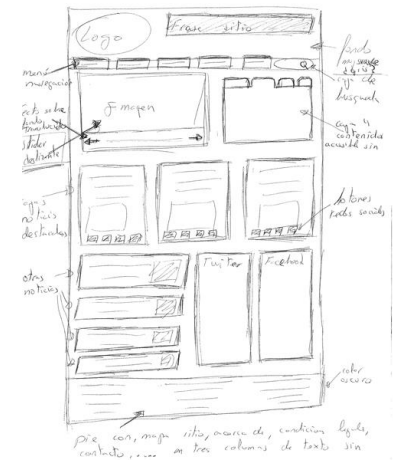 Logo
Frase sitio
fondo
menú
navegación
caja de
búsqueda
Imagen
texto sobre
fondo
translucido
slider
deslizante
contenido
noticias
destacadas
botones
redes sociales
otras
noticias
Twitter
Facebook
color
oscuro
pie con, mapa sitio, acerca de, condicion legales,
contacto, .... en tres columnas de texto sin